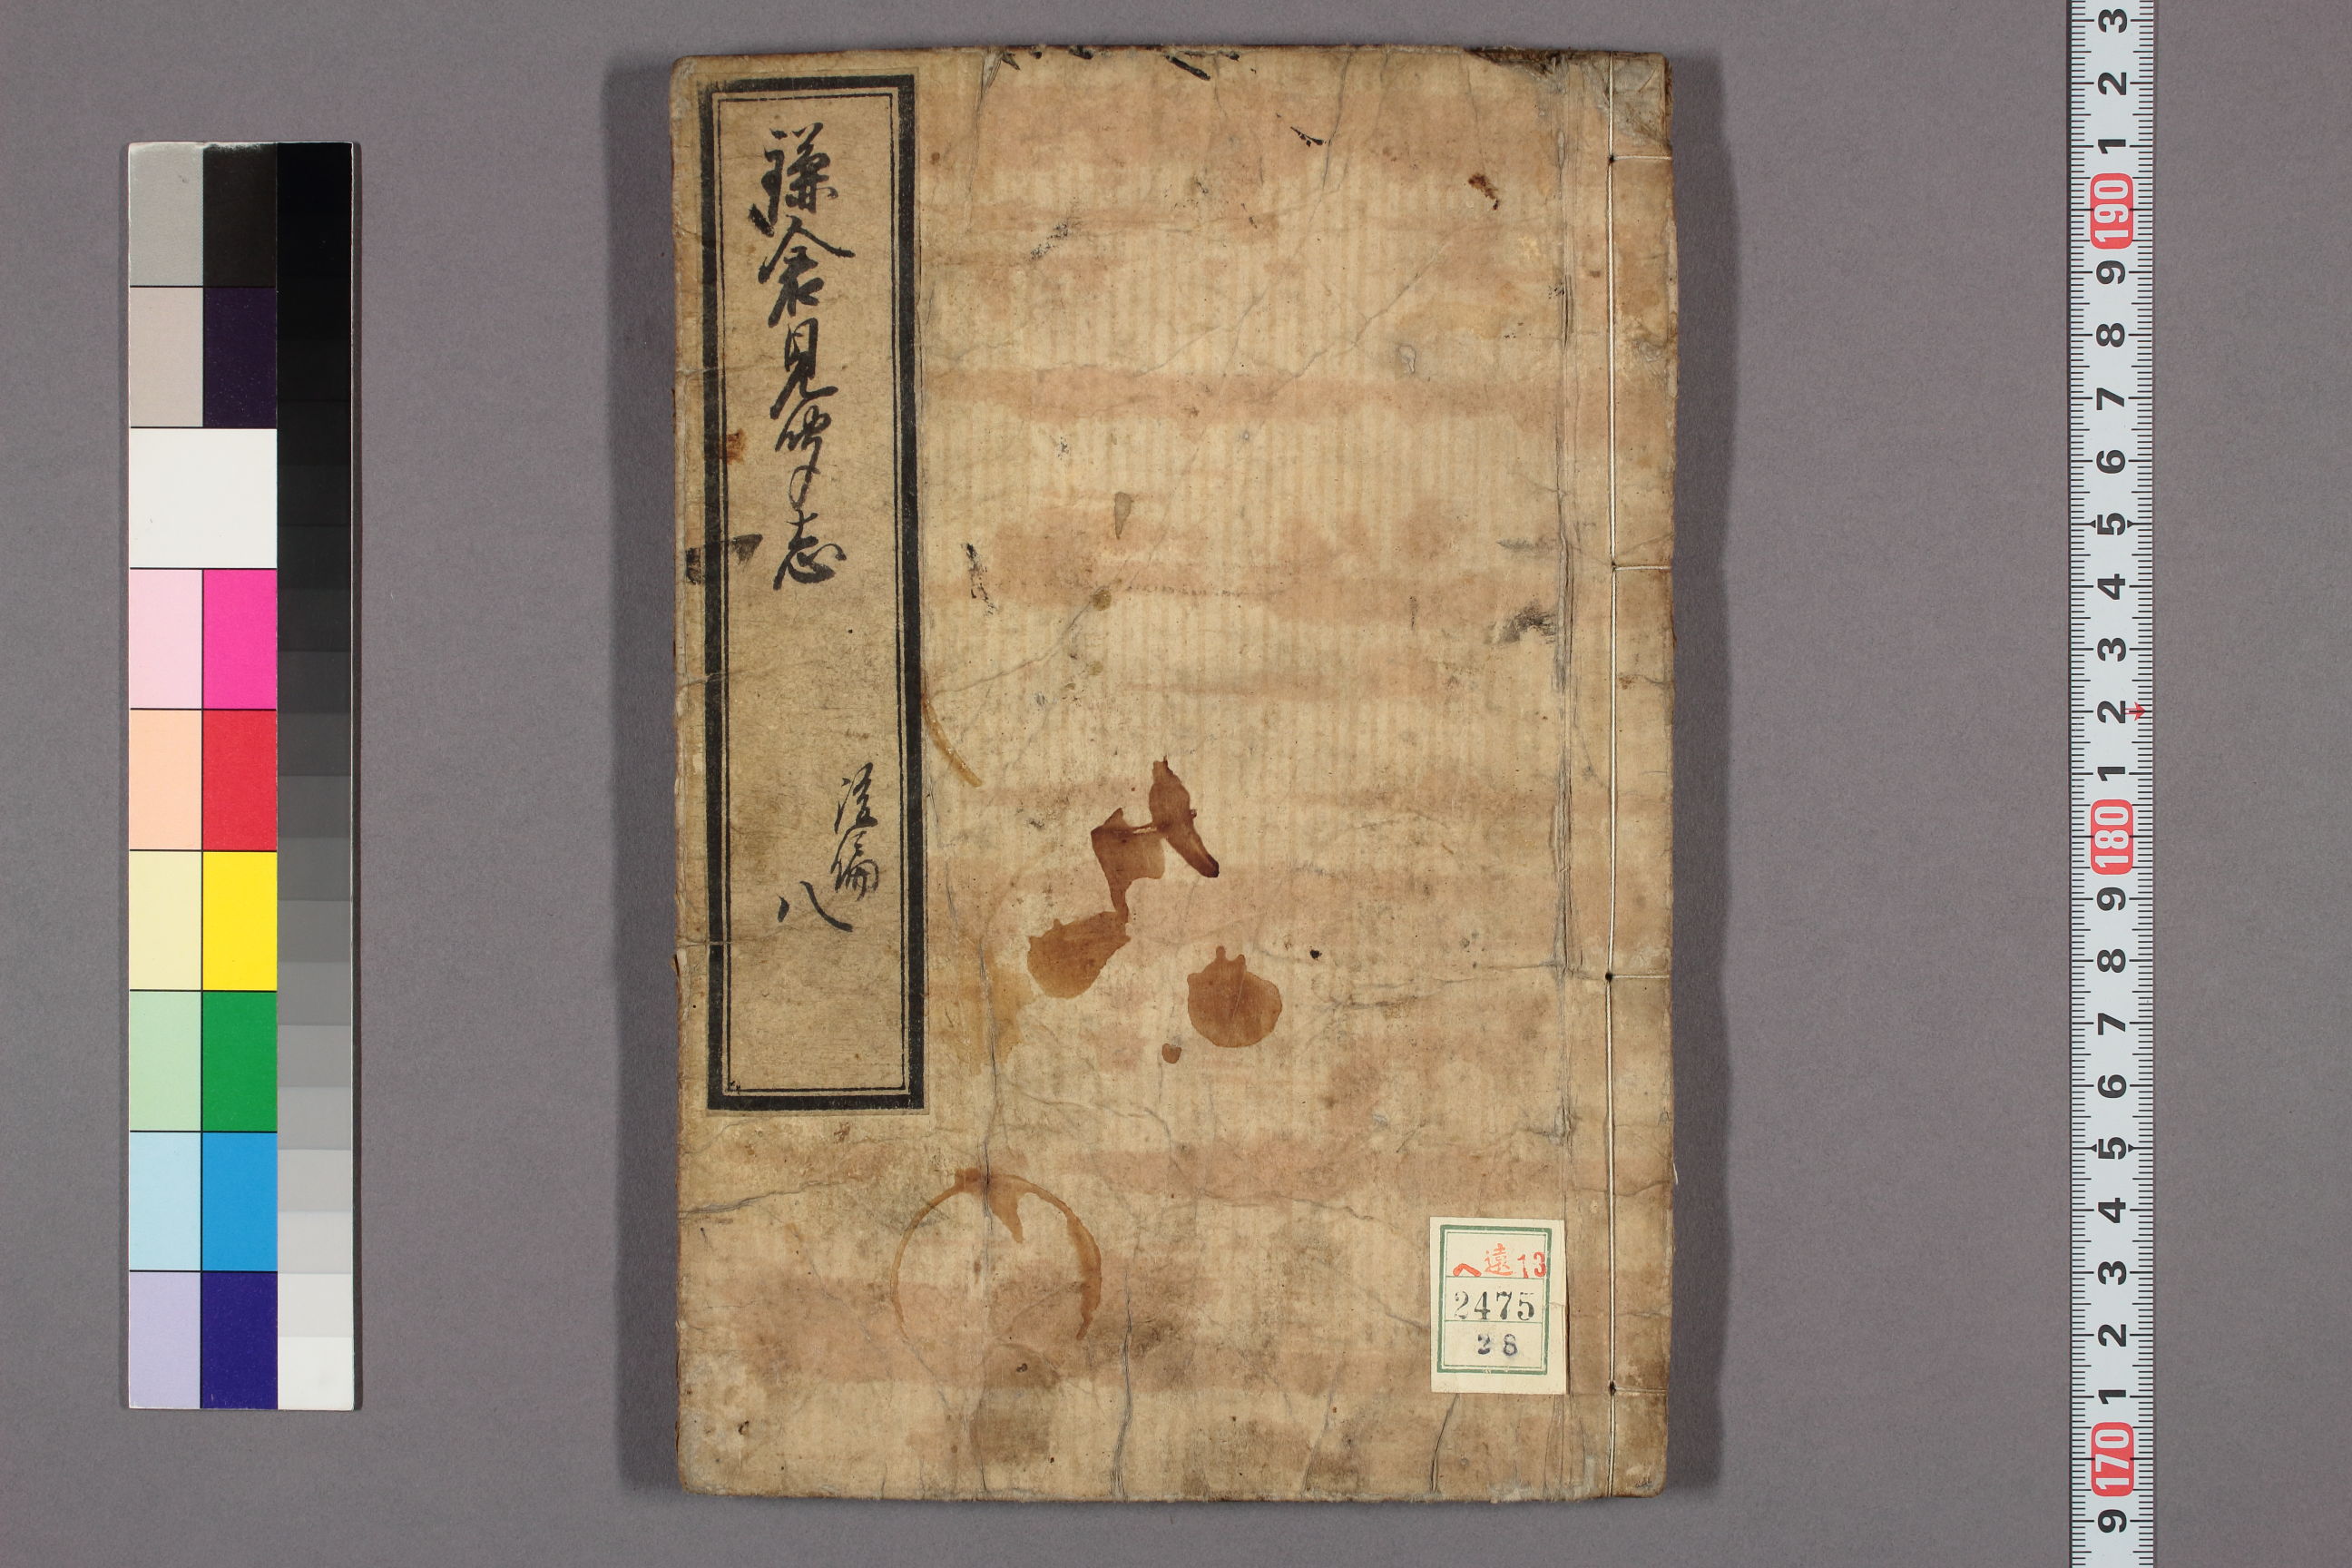 鎌倉見聞志
後編
八
ヘ遠13
2475
28
3
2
1
190
9
8
7
6
5
4
3
2
1
180
9
8
7
6
5
4
3
2
1
170
9